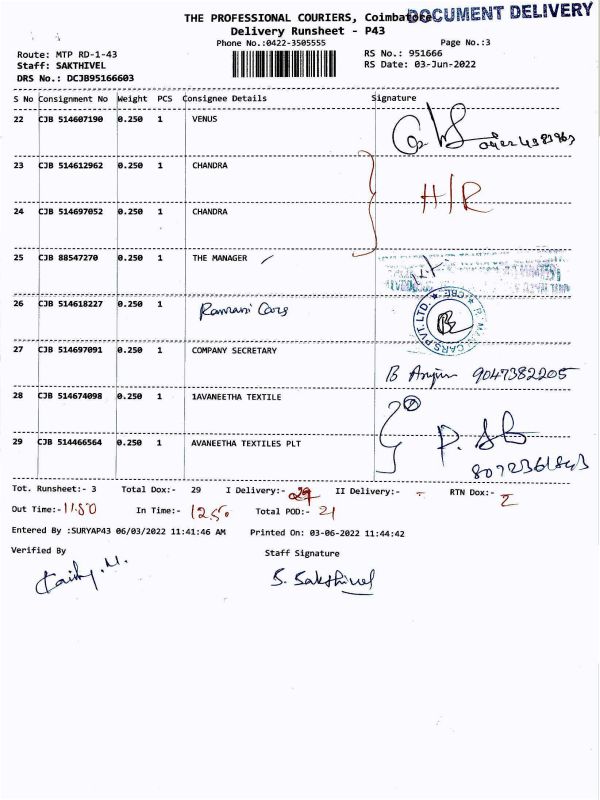 THE PROFESSIONAL COURIERS, Coimbatore
DOCUMENT DELIVERY
Delivery Runsheet - P43
Phone No.:0422-3505555
Page No.:3
Route: MTP RD-1-43
RS No.: 951666
Staff: SAKTHIVEL
RS Date: 03-Jun-2022
DRS No.: DCJB95166603
S No Consignment No Weight PCS Consignee Details Signature
22 CJB 514607190 0.250 1 VENUS
23 CJB 514612962 0.250 1 CHANDRA
H/R
24 CJB 514697052 0.250 1 CHANDRA
25 CJB 88547270 0.250 1 THE MANAGER
26 CJB 514618227 0.250 1 Ramani Cars
CARS PVT.LTD.
27 CJB 514697091 0.250 1 COMPANY SECRETARY
9047382205
28 CJB 514674098 0.250 1 1AVANEETHA TEXTILE
29 CJB 514466564 0.250 1 AVANEETHA TEXTILES PLT
Tot. Runsheet:- 3 Total Dox:- 29 I Delivery:- 27 II Delivery:- - RTN Dox:- 2
Out Time:- 11.50 In Time:- 12.50 Total POD:- 21
Entered By :SURYAP43 06/03/2022 11:41:46 AM Printed On: 03-06-2022 11:44:42
Verified By
Staff Signature
S. Sakthivel